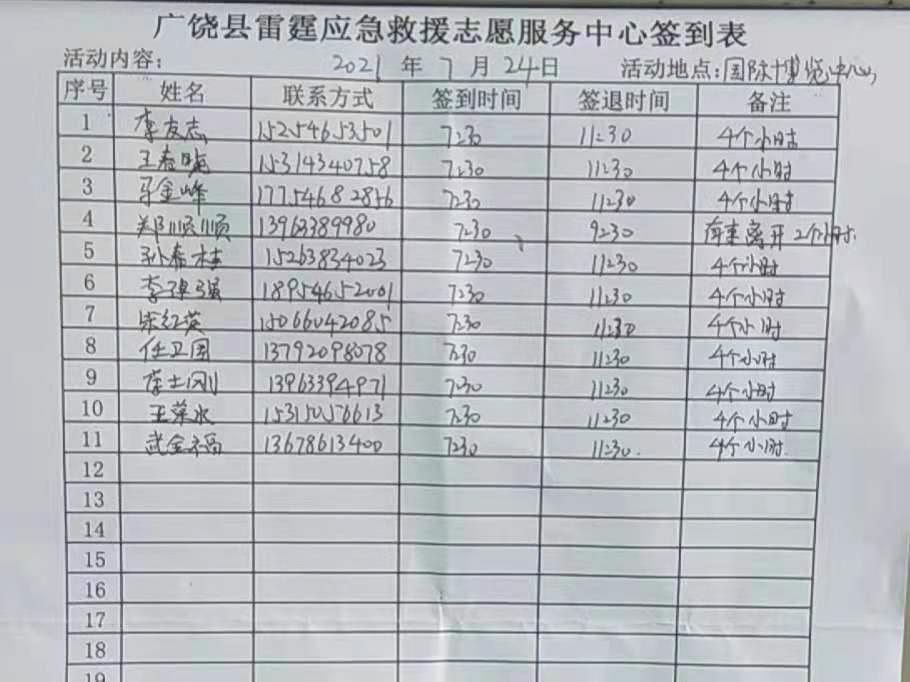 广饶县雷霆应急救援志愿服务中心签到表
活动内容： 2021 年 7 月 24日 活动地点：国际博览中心
序号 姓名 联系方式 签到时间 签退时间 备注
1 李友志 15254653501 7:30 11:30 4个小时
2 王春晓 15314340758 7:30 11:30 4个小时
3 马金峰 17754682856 7:30 11:30 4个小时
4 郑顺顺 13963389980 7:30 9:30 有事离开 2个小时.
5 孙希桂 15263834023 7:30 11:30 4个小时
6 李强 18954652001 7:30 11:30 4个小时
7 宋红英 15066042085 7:30 11:30 4个小时
8 任卫国 13792098078 7:30 11:30 4个小时
9 李士刚 13963394971 7:30 11:30 4个小时
10 王荣水 15315056613 7:30 11:30 4个小时
11 武金福 13678613400 7:30 11:30. 4个小时.
12
13
14
15
16
17
18
19